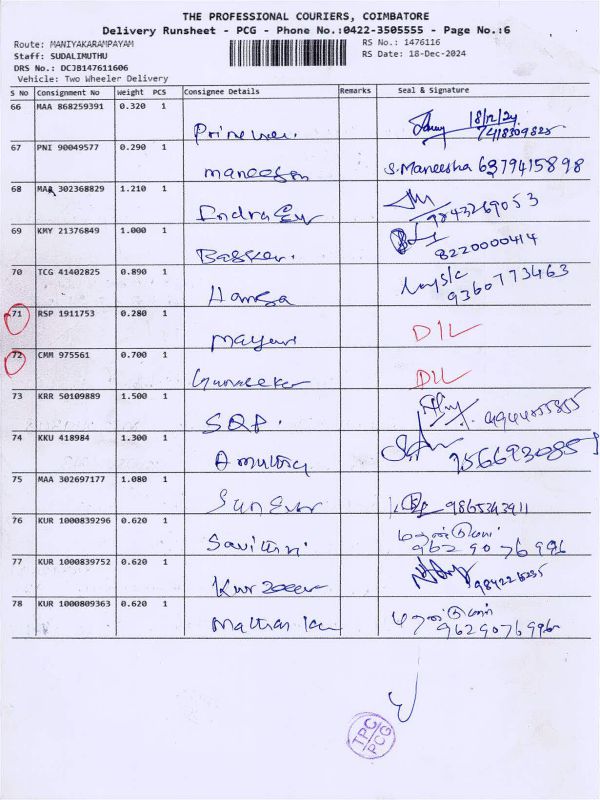 THE PROFESSIONAL COURIERS, COIMBATORE
Delivery Runsheet - PCG - Phone No.:0422-3505555 - Page No.:6
Route: MANIYAKARAMPAYAM RS No.: 1476116
Staff: SUDALIMUTHU RS Date: 18-Dec-2024
DRS No.: DCJB147611606
Vehicle: Two Wheeler Delivery
S No Consignment No Weight PCS Consignee Details Remarks Seal & Signature
66 MAA 868259391 0.320 1 18/12/24
7418309825
67 PNI 90049577 0.290 1 S. Maneesha 6379415898
68 MAA 302368829 1.210 1 9843269053
69 KMY 21376849 1.000 1 Basker. 8220000414
70 TCG 41402825 0.890 1 Hamsa 9360773463
71 RSP 1911753 0.280 1 Mayuri DIL
72 CMM 975561 0.700 1 DIL
73 KRR 50109889 1.500 1
74 KKU 418984 1.300 1 Amutha
75 MAA 302697177 1.080 1
76 KUR 1000839296 0.620 1 Savithri
9629076996
77 KUR 1000839752 0.620 1
78 KUR 1000809363 0.620 1
9629076996
TPC
PCG